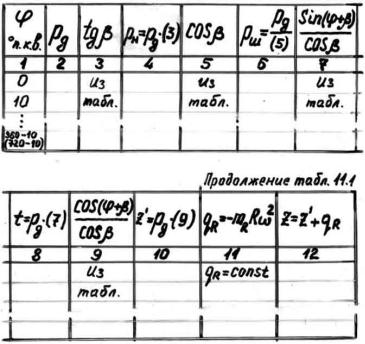 φ °п.к.в. p_g tgβ p_н=p_g·(3) cosβ p_ш=p_g/(5) Sin(φ+β)/cosβ
1 2 3 4 5 6 7
0 из табл. из табл. из табл.
10
⋮
360-10
(720-10)
Продолжение табл. 11.1
t=p_g·(7) cos(φ+β)/cosβ z'=p_g·(9) q_R=-m_R Rω² z=z'+q_R
8 9 10 11 12
из табл. q_R=const